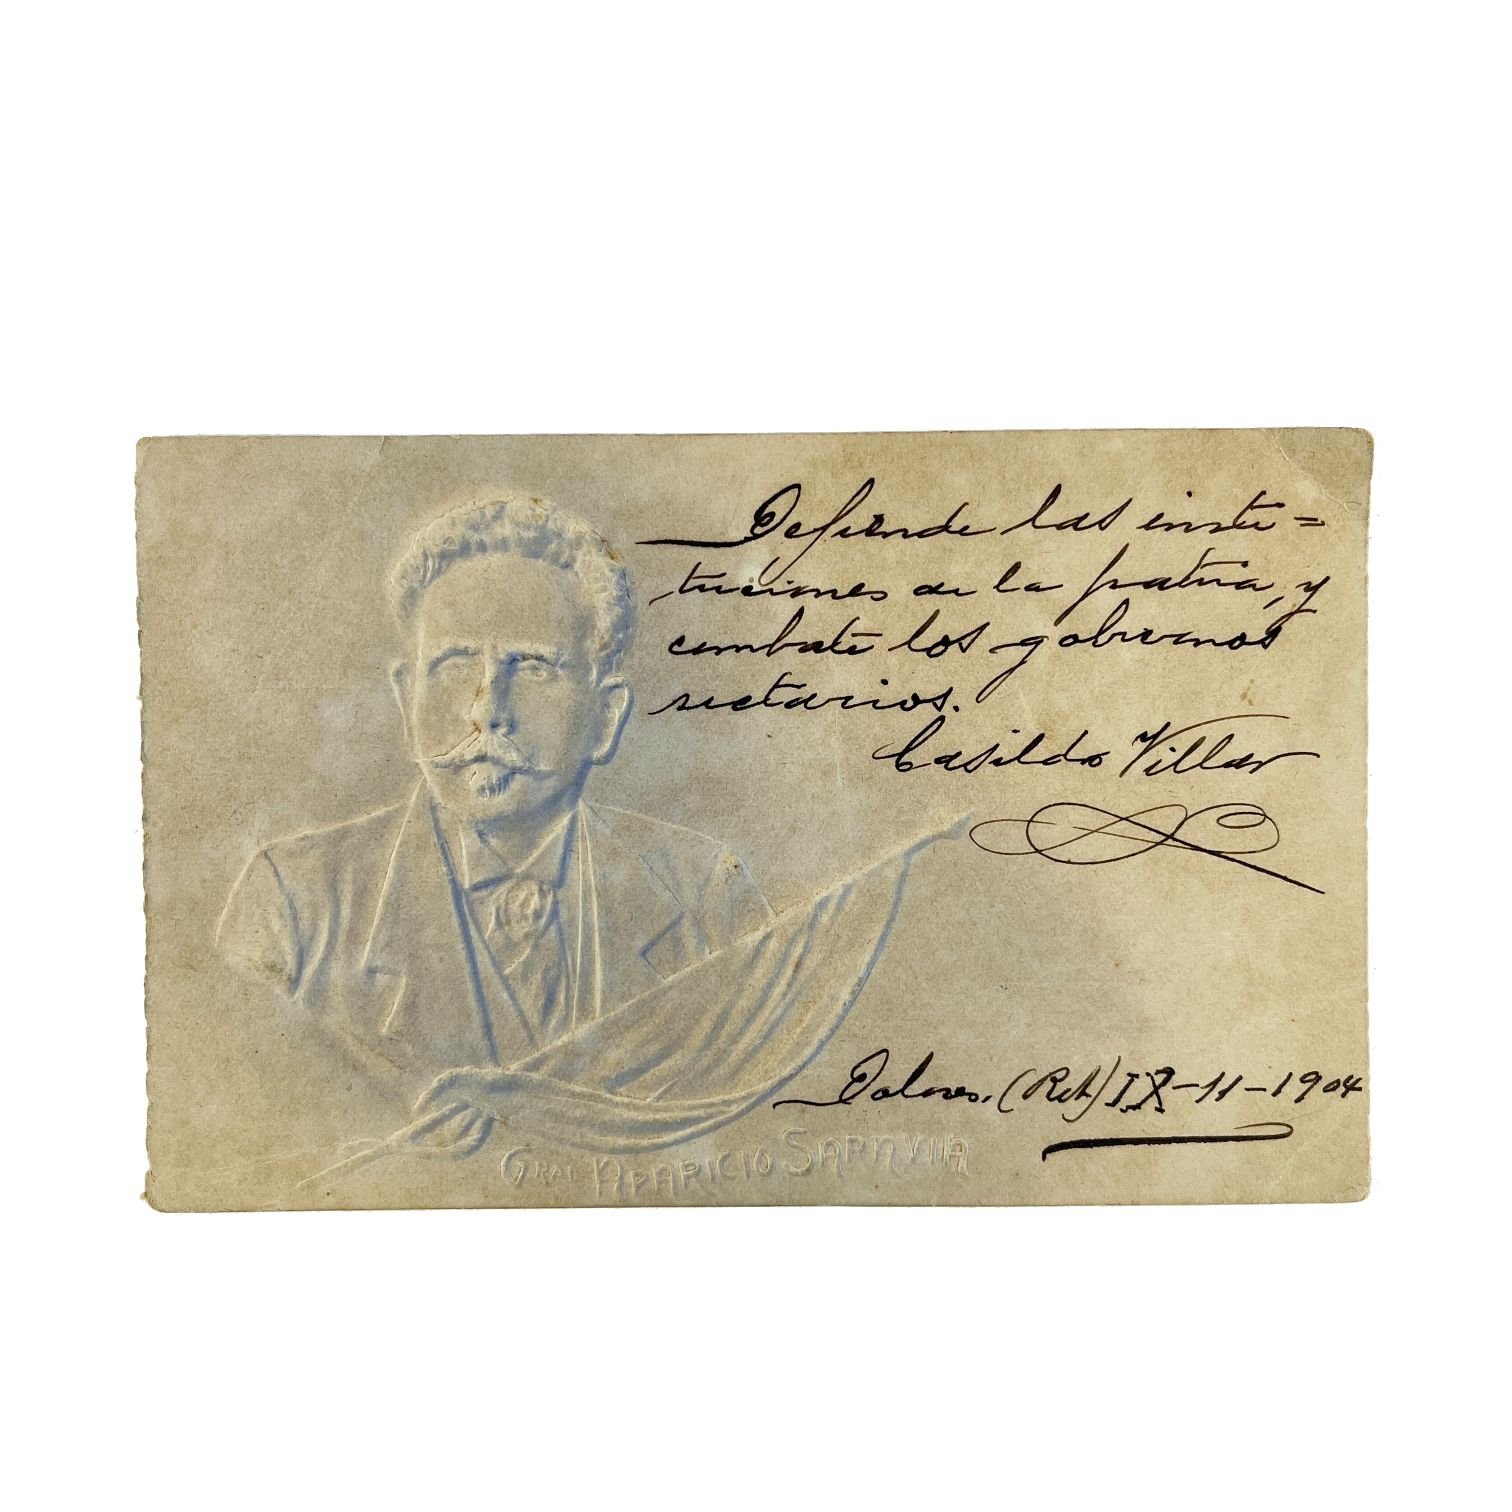 Defiende las insti=
tuciones de la patria, y
combate los gobiernos
sectarios.
Casildo Villar
Dolores. (Rch) IX-11-1904
GRAL APARICIO SARAVIIA